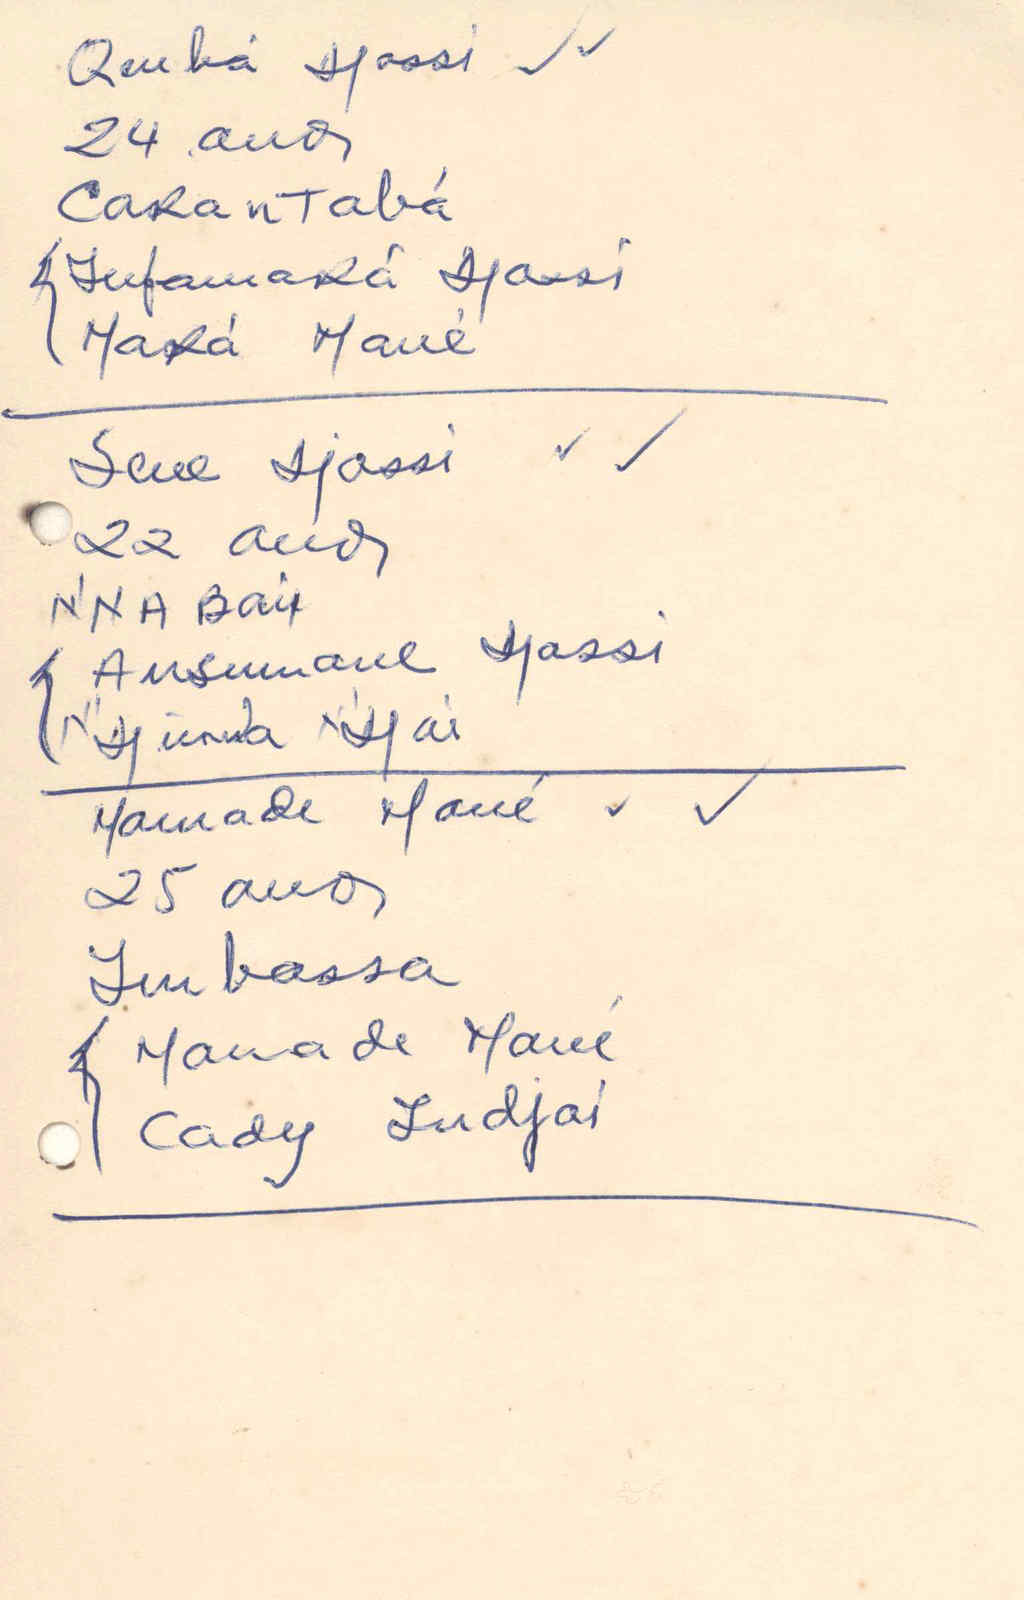 Quebá Djassi
24 anos
Carantabá
Infamará Djassi
Mará Mané
Sene Djassi
22 anos
N'NA Bai
Ansumane Djassi
N'Djimba N'Djai
Mamade Mané
25 anos
Imbassa
Mamade Mané
Cady Indjai